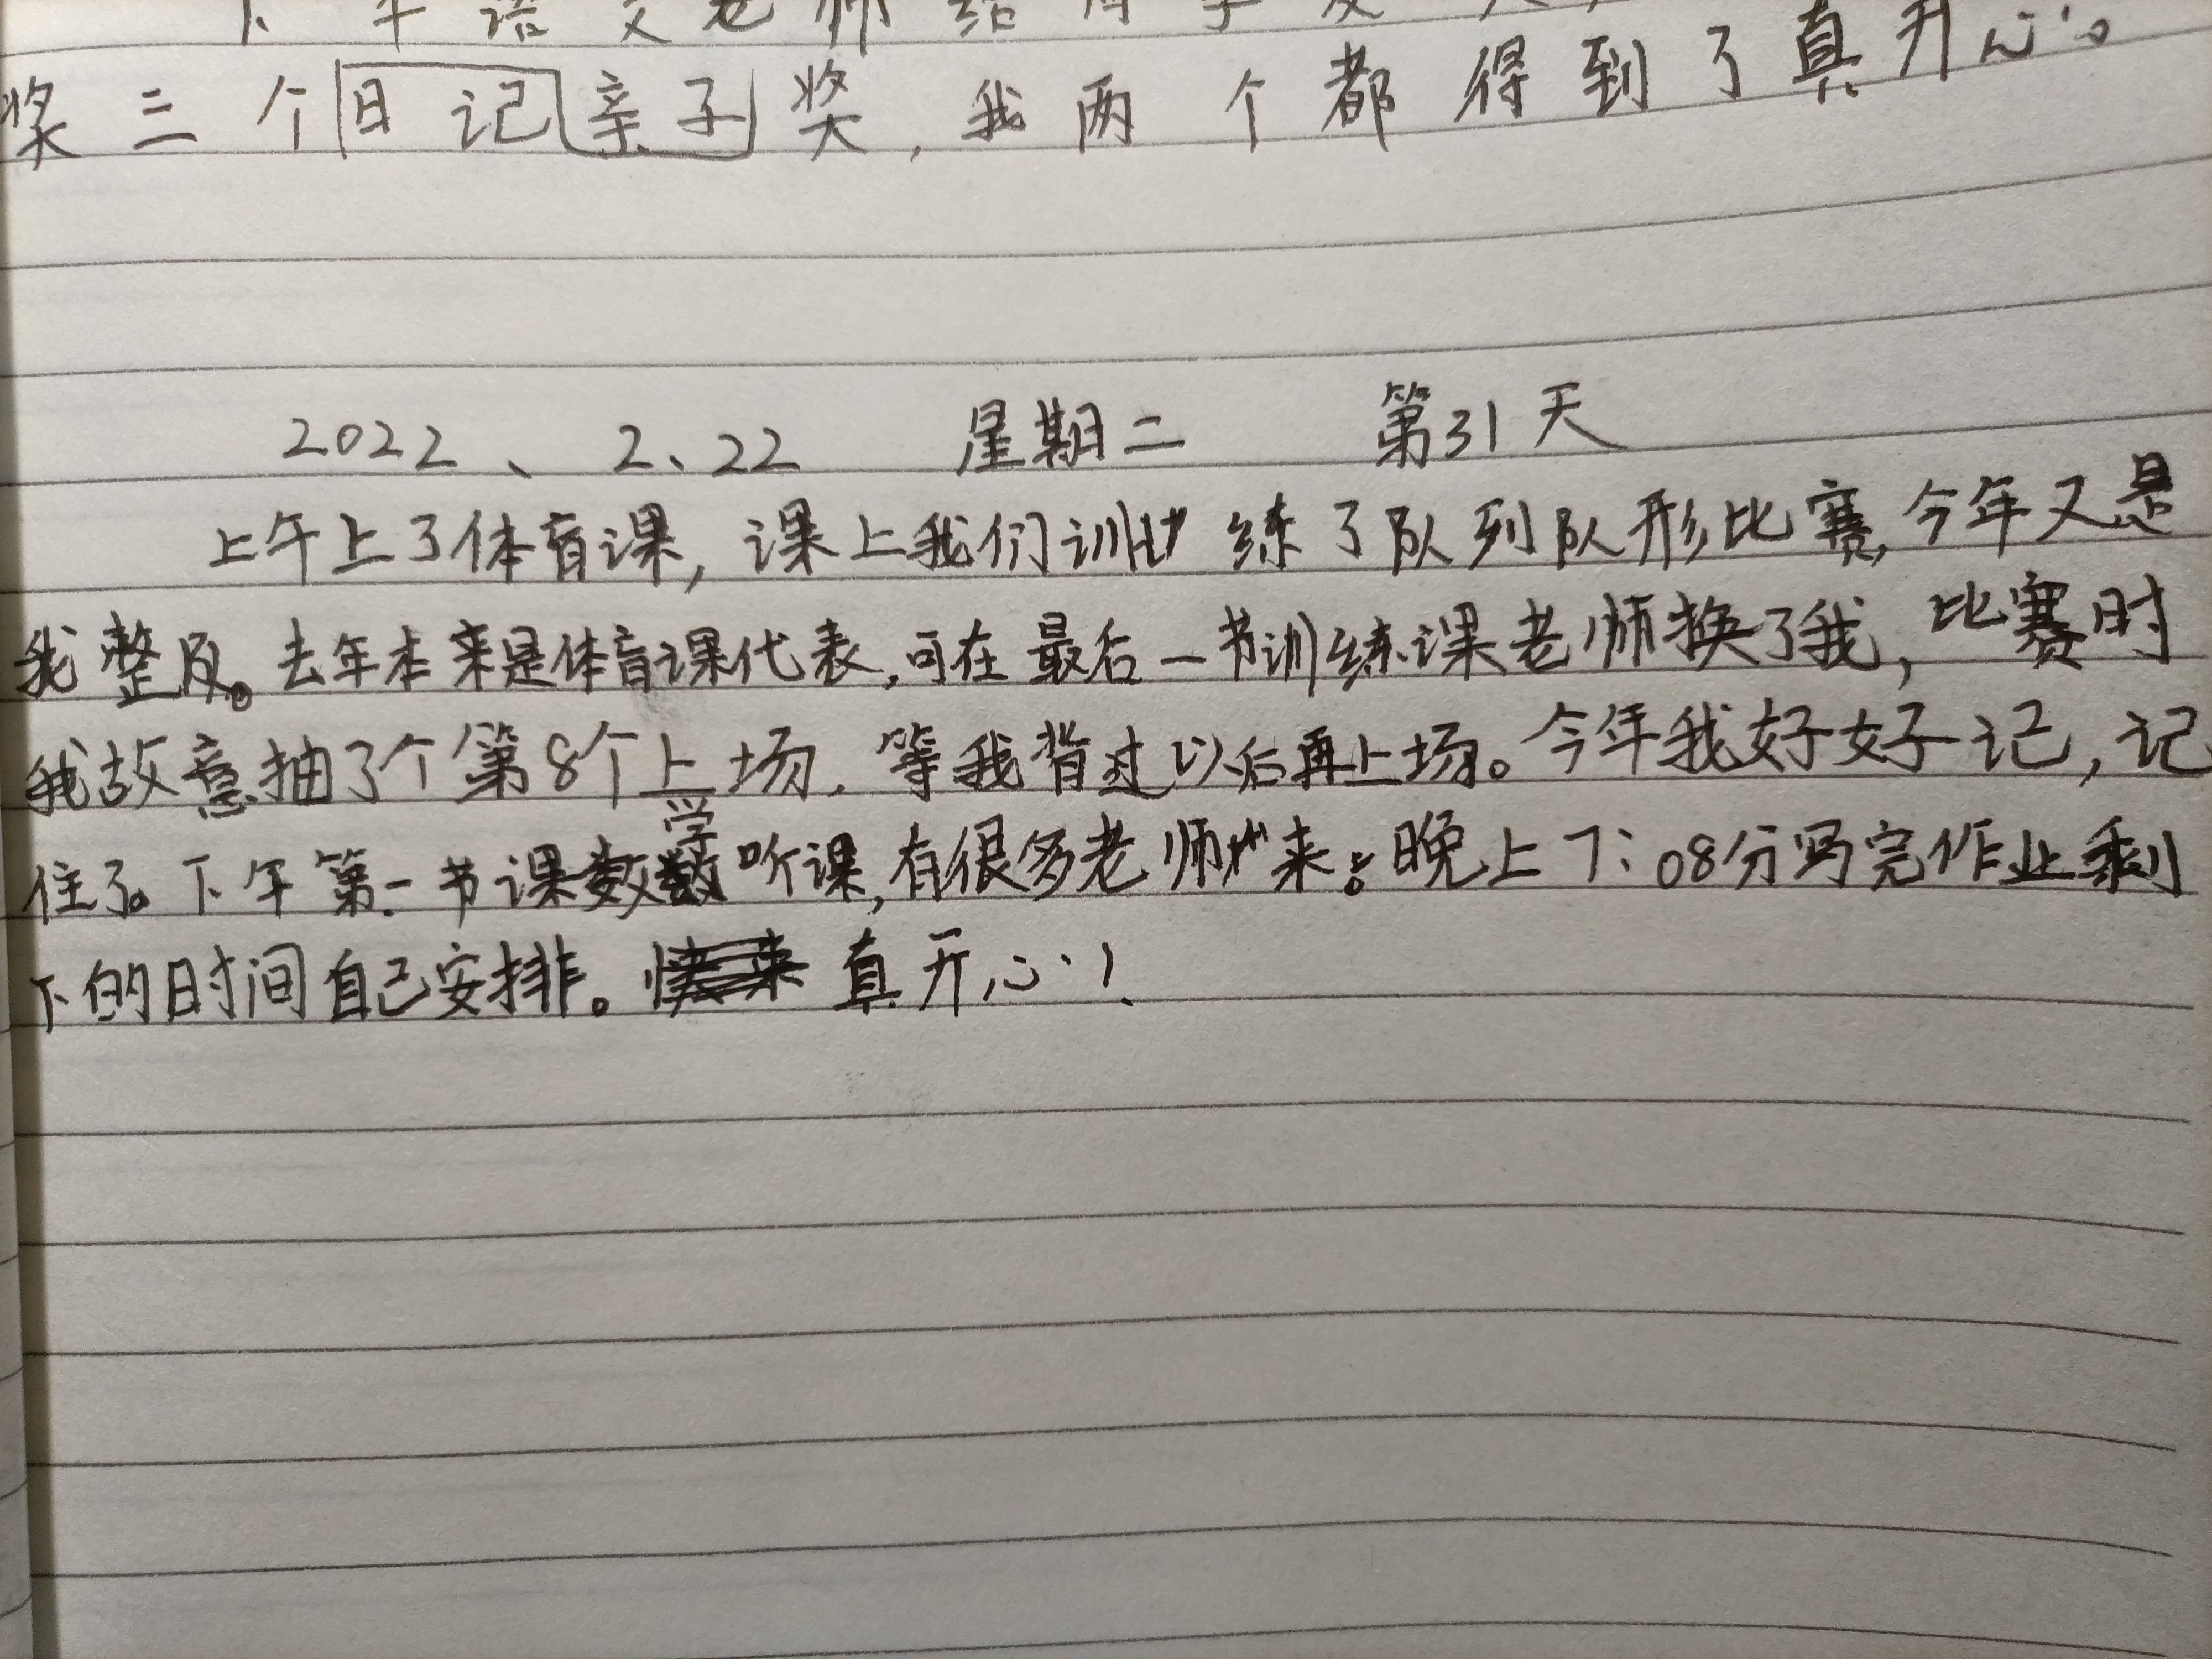 下午语文老师给
奖三个日记亲子奖,我两个都得到了真开心。
2022、2、22 星期二 第31天
上午上了体育课,课上我们训练了队列队形比赛,今年又是
我整队。去年本来是体育课代表,可在最后一节训练课老师换了我,比赛时
我故意抽了个第8个上场.等我背过以后再上场。今年我好好记,记
住了。下午第一节课数学听课,有很多老师来。晚上7:08分写完作业剩
下的时间自己安排。真开心!